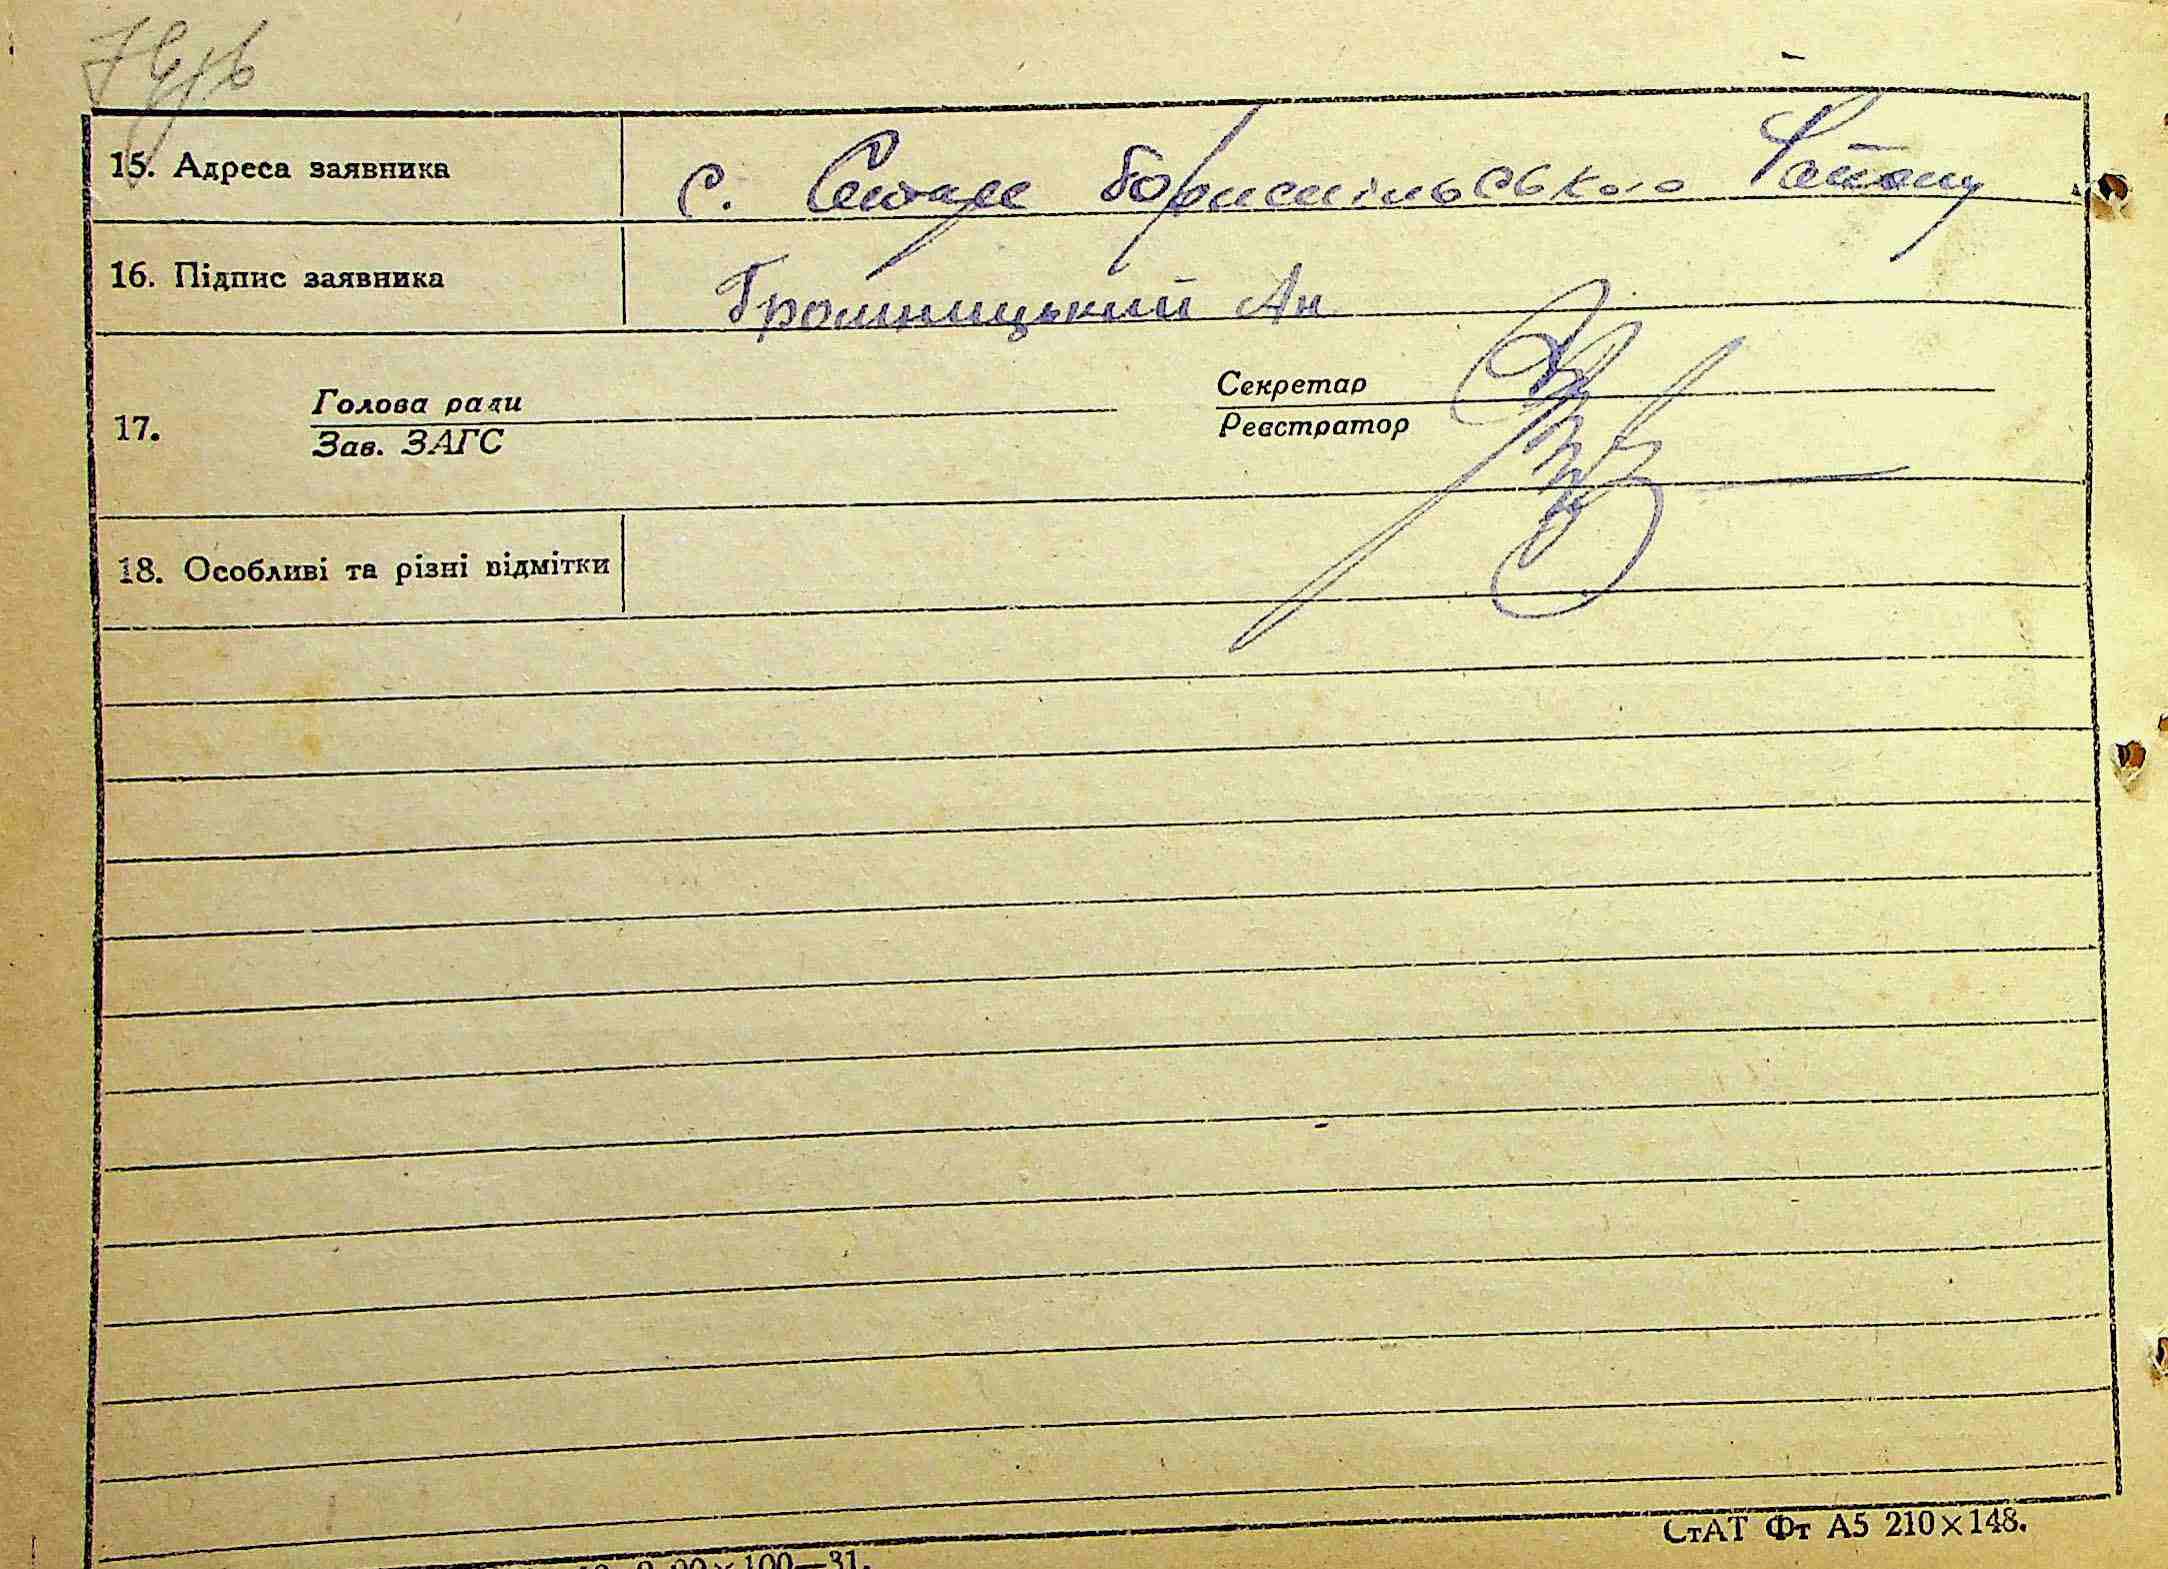 15. Адреса заявника с. Бориспільського району
16. Підпис заявника Громницький Ан
17. Голова ради Секретар
Зав. ЗАГС Реєстратор
18. Особливі та різні відмітки
СтАТ Фт А5 210×148.
90×100—31.